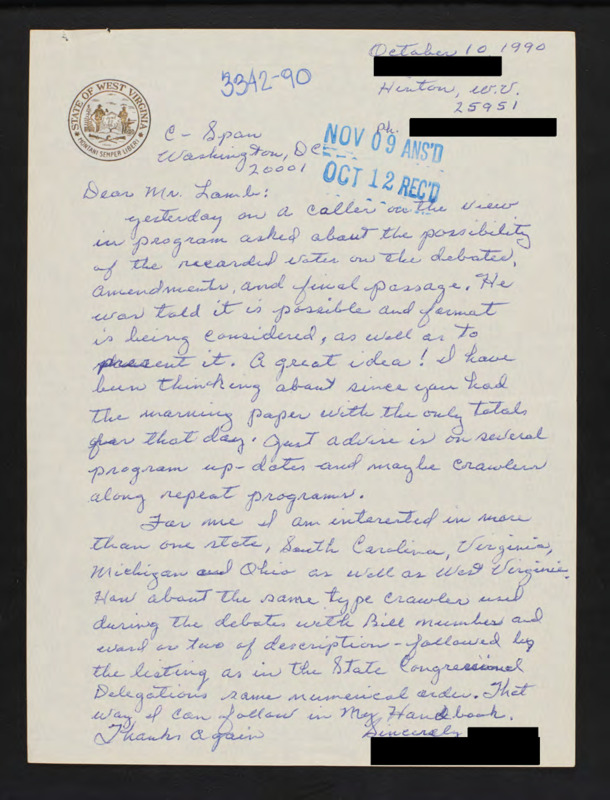 October 10 1990
3342-90
Hinton, W.V.
25951
Ph.
STATE OF WEST VIRGINIA
MONTANI SEMPER LIBERI
C-Span
Washington, DC
20001
NOV 09 ANS'D
OCT 12 REC'D
Dear Mr. Lamb:
yesterday on a caller on the view
in program asked about the possibility
of the recorded votes on the debates,
amendments, and final passage. He
was told it is possible and format
is being considered, as well as to
present it. A great idea! I have
been thinking about since you had
the morning paper with the only totals
for that day. Just advise is on several
program up-dates and maybe crawlers
along repeat programs.
For me I am interested in more
than one state, South Carolina, Virginia,
Michigan and Ohio as well as West Virginia.
How about the same type crawler used
during the debates with Bill number and
word or two of description - followed by
the listing as in the State Congressional
Delegations same numerical order. That
way I can follow in My Handbook.
Thanks Again
Sincerely